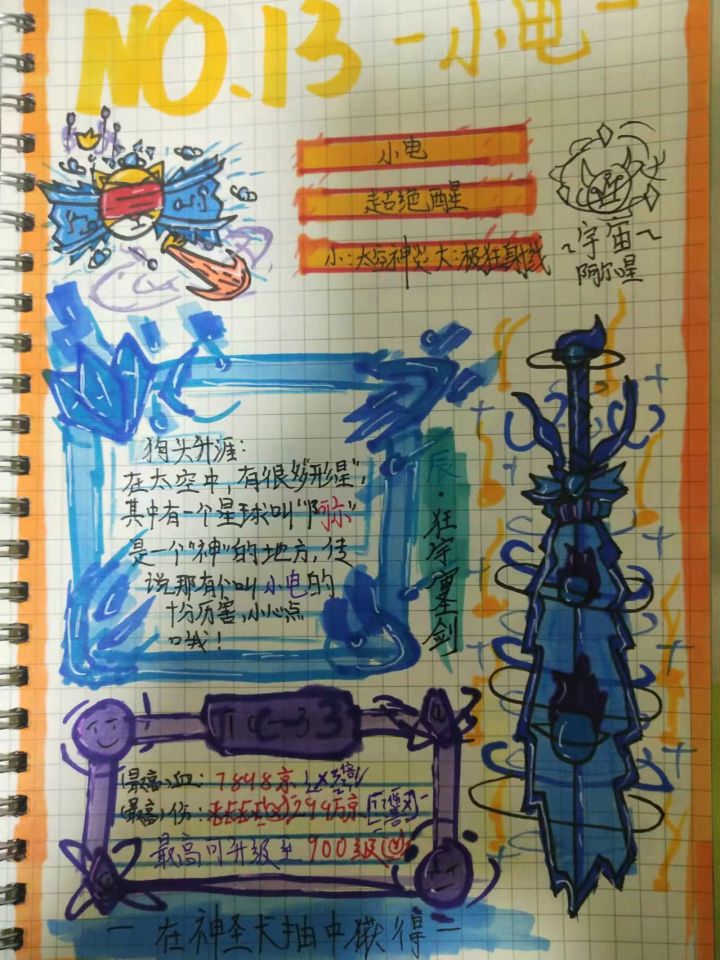 NO.13 -小电-
小电
超绝醒
小:太空神火 大:极狂射线
~宇宙~
阿尔星
狗头升涯:
在太空中,有很多"形星",
其中有一个星球叫"阿尔"
是一个"神"的地方,传
说那有个叫小电的
十分历害,小心点
哦!
辰·狂宇宙圣剑
TC-33
(最高)血:7898京
(最高)伤:
最高可升级至900级
-在神圣大抽中獗得-